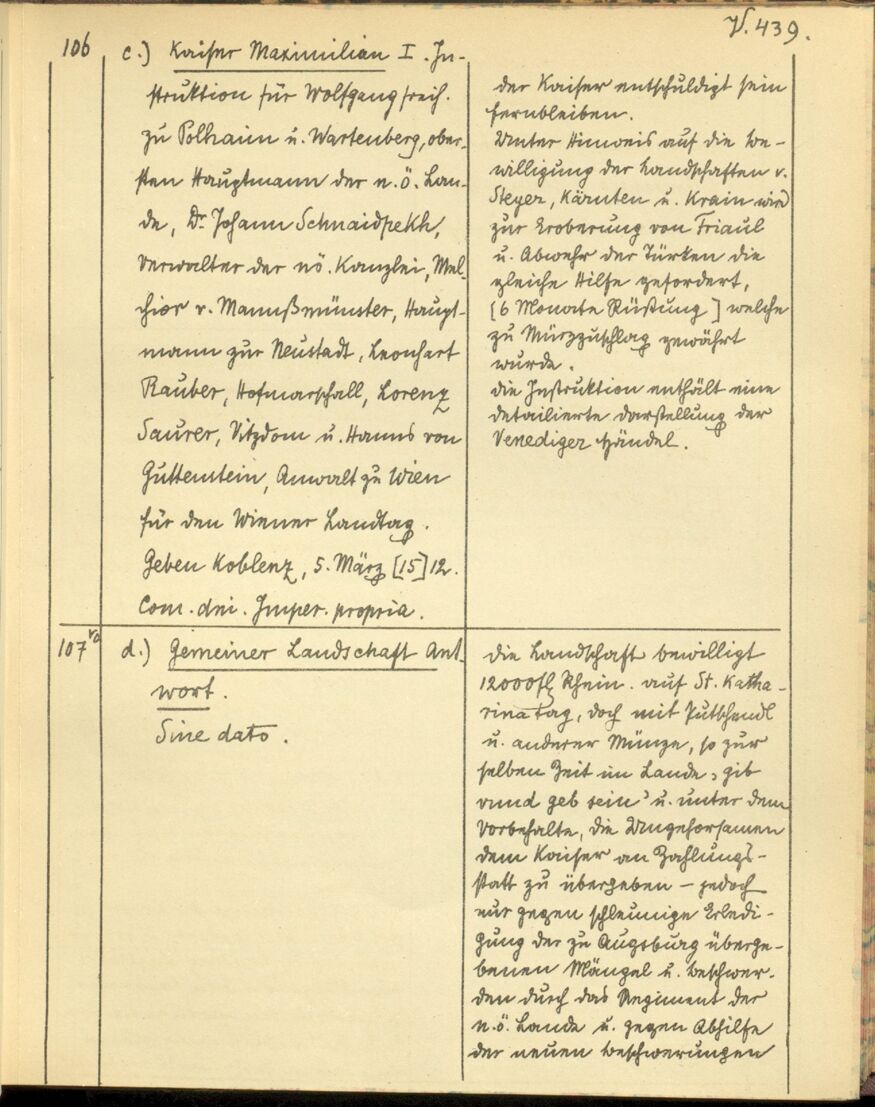 V. 439.
106
c.) Kaiser Maximilian I. In-
struktion für Wolfgang freih.
zu Polhaim u. Wartenberg, ober-
sten Hauptmann der n.ö. Lan-
de, Dr Johann Schnaidpekh,
Verwalter der nö. Kanzlei, Mel-
chior v. Mannßmünster, Haupt-
mann zur Neustadt, Leonhart
Rauber, Hofmarschall, Lorenz
Saurer, Vitzdom u. Hanns von
Guttenstein, Anwalt zu Wien
für den Wiener Landtag.
Geben Koblenz, 5. März [15]12.
Com. dni. Imper. propria.
der Kaiser entschuldigt sein
fernbleiben.
Unter Hinweis auf die be-
willigung der Landschaften v.
Steyer, Kärnten u. Krain wird
zur Eroberung von Friaul
u. Abwehr der Türken die
gleiche Hilfe gefordert,
[6 Monate Rüstung] welche
zu Mürzzuschlag gewährt
wurde.
die Instruktion enthält eine
detailierte darstellung der
Venediger händel.
107 ro
d.) Gemeiner Landschaft Ant-
wort.
Sine dato.
die Landschaft bewilligt
12000 fl Rhein. auf St. Katha-
rina Tag, doch mit
u. anderer Münze, so zur
selben Zeit im Lande, gib
vnnd geb sein' u. unter dem
Vorbehalte, die Ungehorsamen
dem Kaiser an Zahlungs-
statt zu übergeben – jedoch
nur gegen schleunige Erledi-
gung der zu Augsburg überge-
benen Mängel u. beschwer-
den durch das Regiment der
n.ö. Lande u. gegen Abhilfe
der neuen beschwerungen